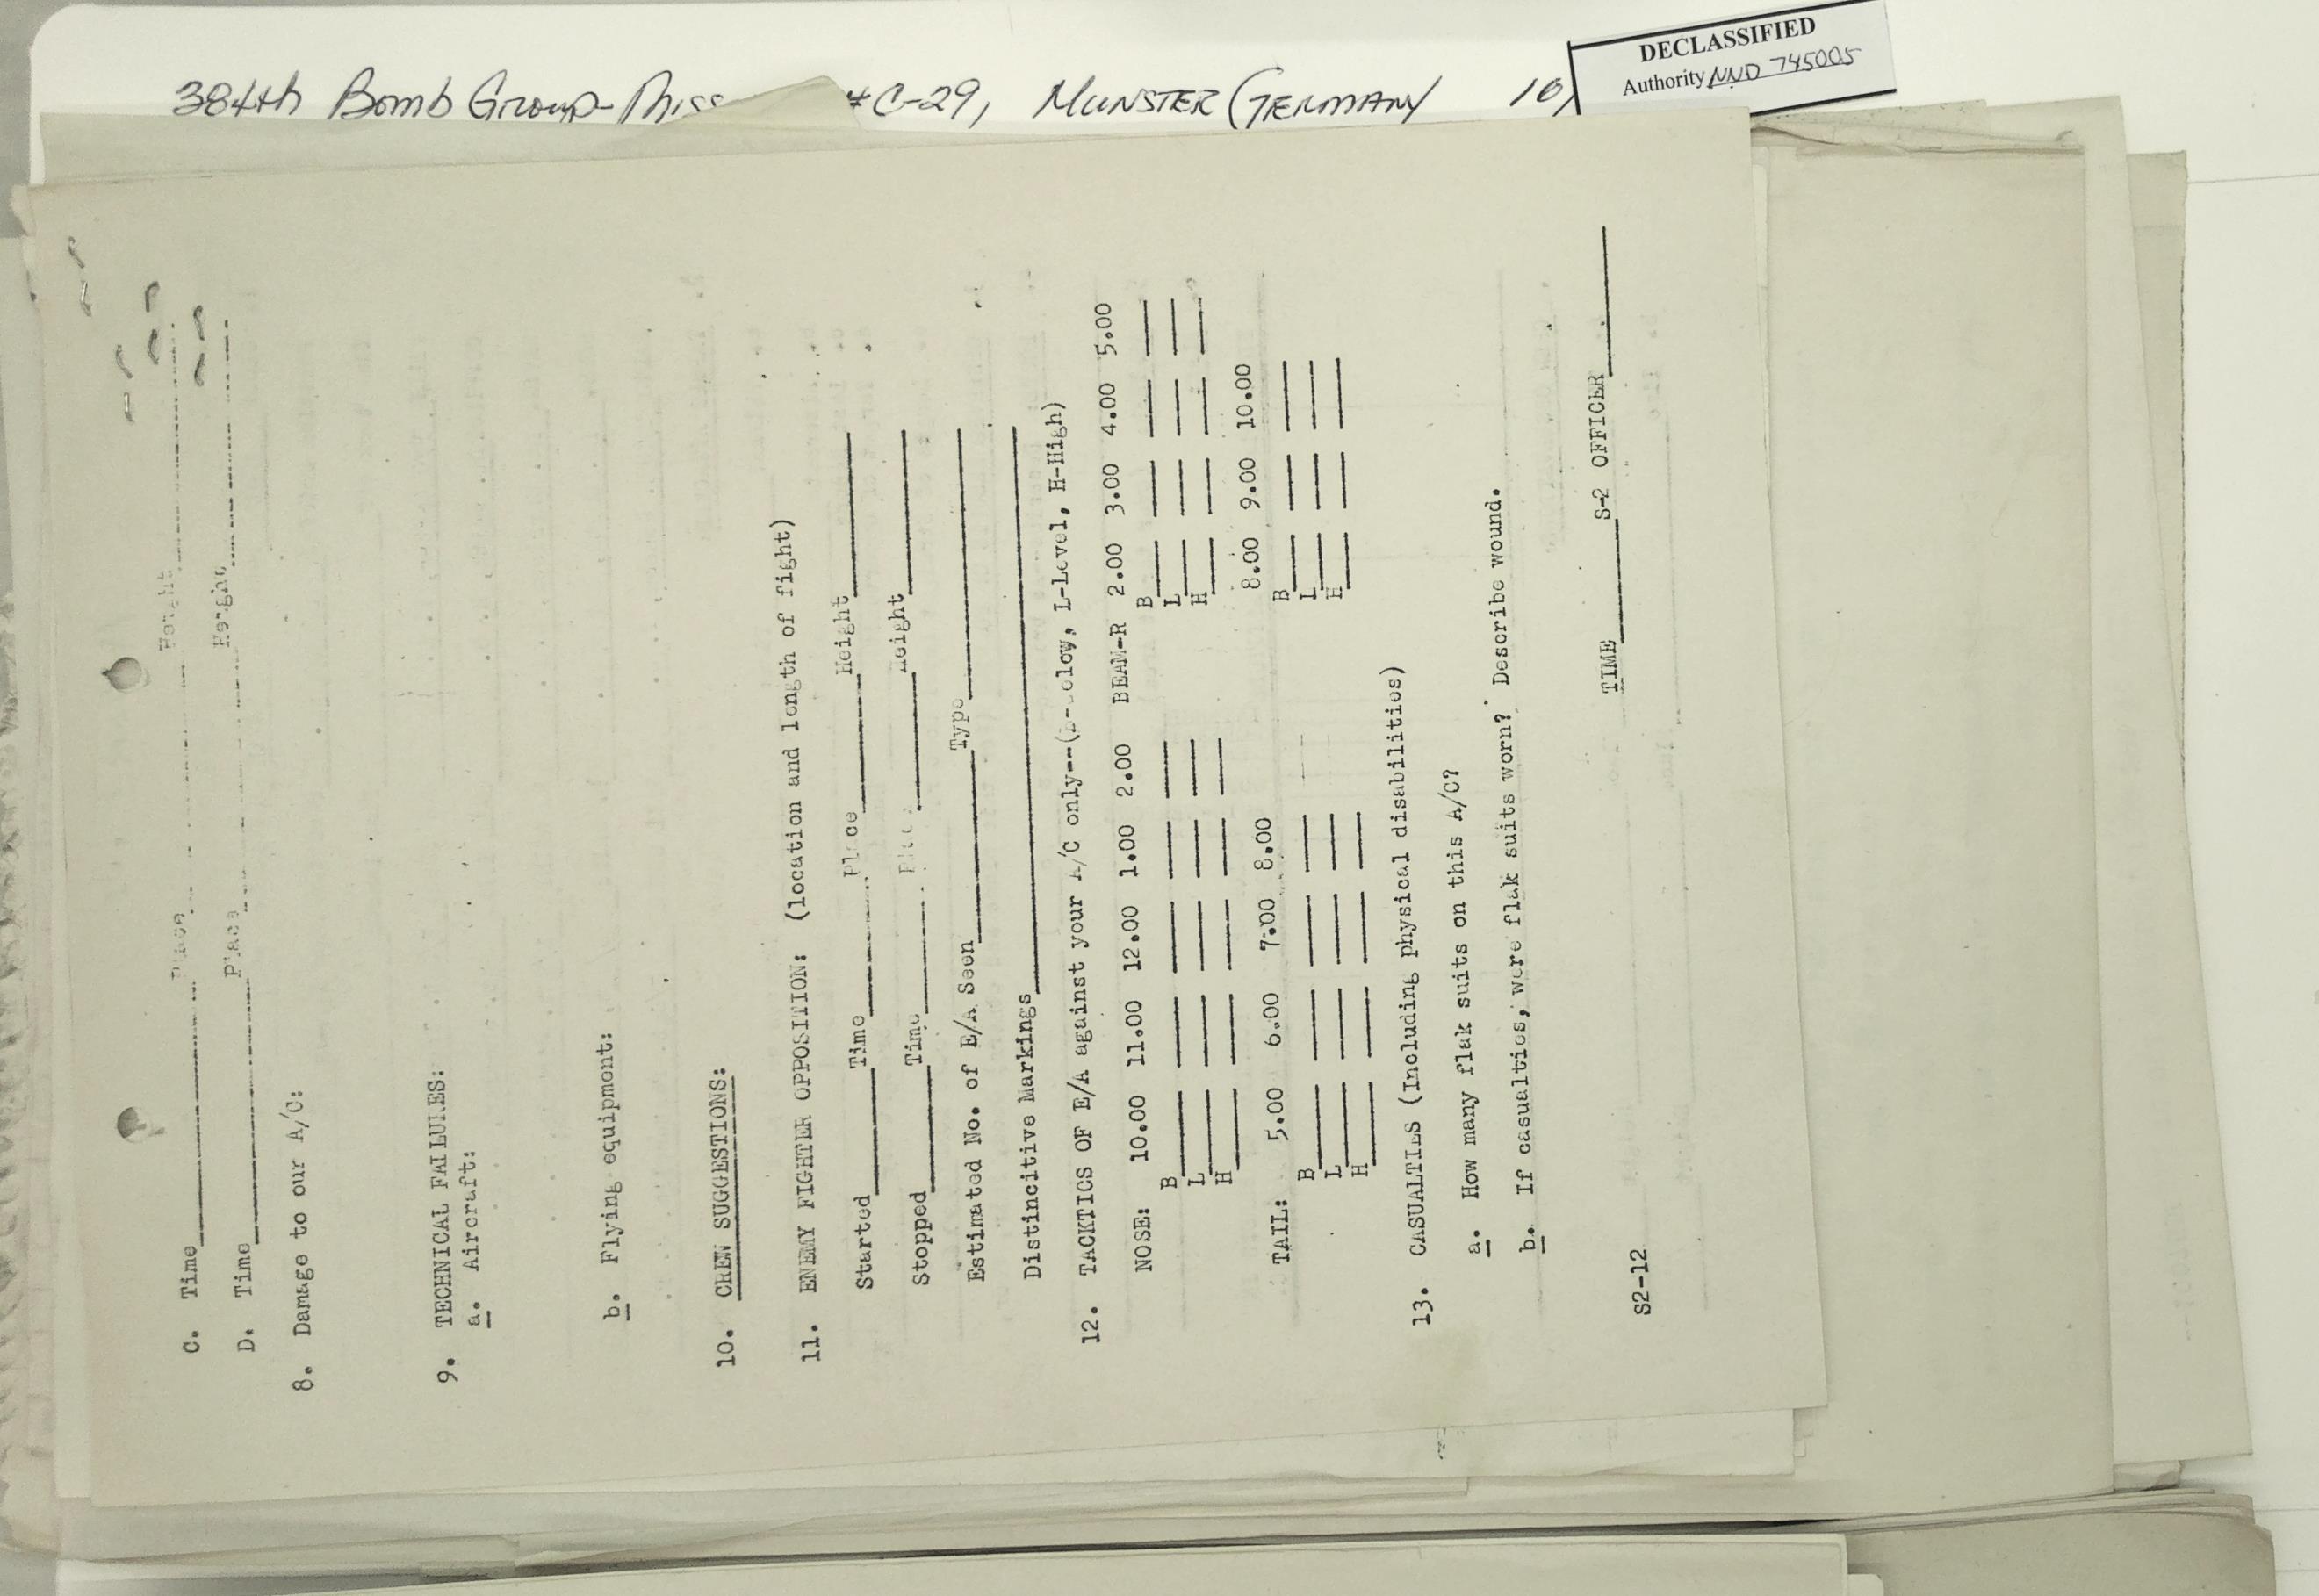 384th Bomb Group - #C-29, MUNSTER (GERMANY 10
DECLASSIFIED
Authority NND 745005
C. Time Place Height
D. Time Place Height
8. Damage to our A/C:
9. TECHNICAL FAILURES:
a. Aircraft:
b. Flying equipment:
10. CREW SUGGESTIONS:
11. ENEMY FIGHTER OPPOSITION: (location and length of fight)
Started Time Place Height
Stopped Time Place Height
Estimated No. of E/A Seen Type
Distincitive Markings
12. TACKTICS OF E/A against your A/C only--(B-elow, L-Level, H-High)
NOSE: 10.00 11.00 12.00 1.00 2.00 BEAM-R 2.00 3.00 4.00 5.00
B B
L L
H H
TAIL: 5.00 6.00 7.00 8.00 8.00 9.00 10.00
B B
L L
H H
13. CASUALTIES (Including physical disabilities)
a. How many flak suits on this A/C?
b. If casualties, were flak suits worn? Describe wound.
TIME S-2 OFFICER
S2-12